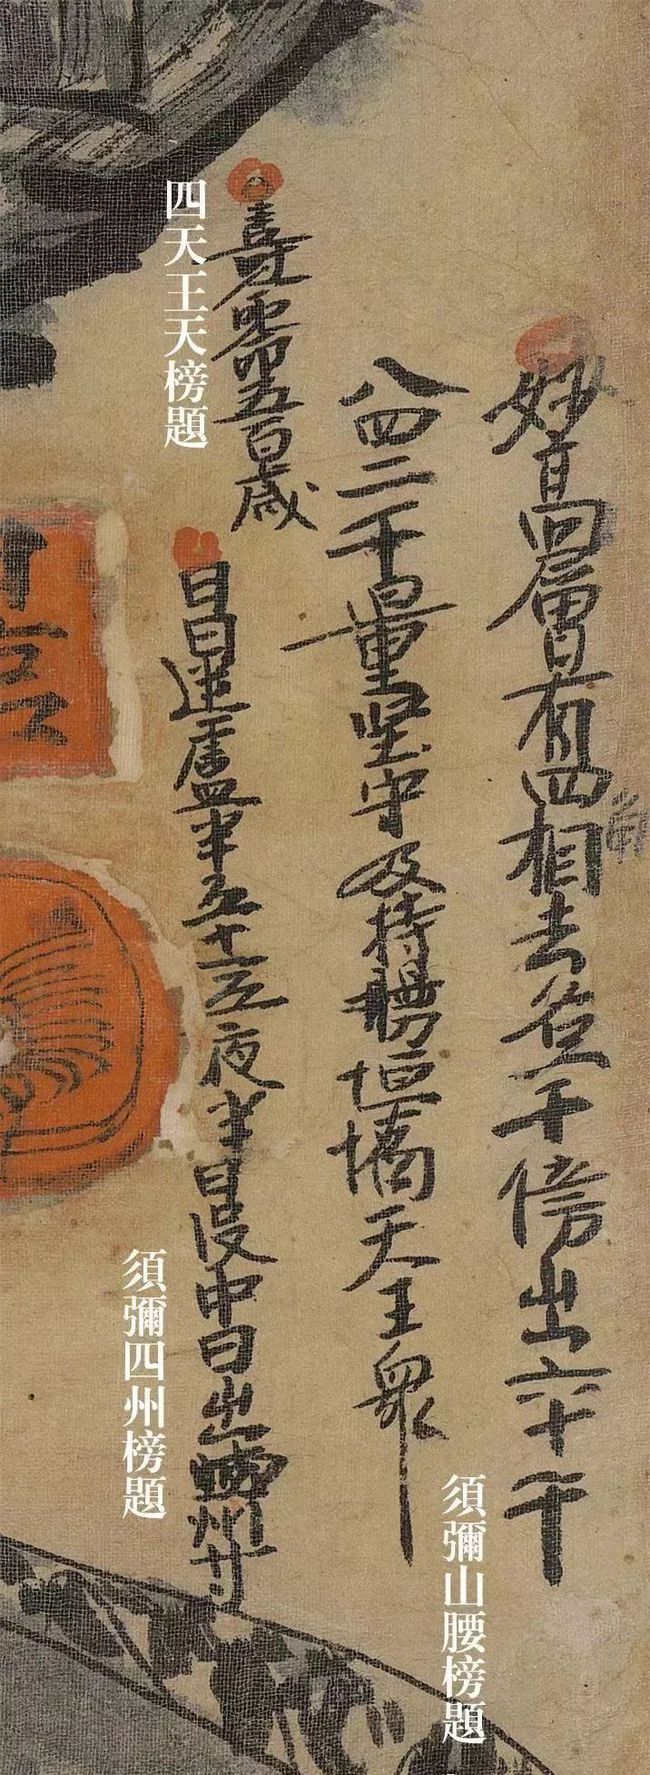 妙高層有四相去各千傍出六十千
八四二千量堅守及持鬘恒憍天王眾
須彌山腰榜題
壽五百歲
四天王天榜題
日月迷盧半五十五夜半日没中日出四州等
須彌四州榜題